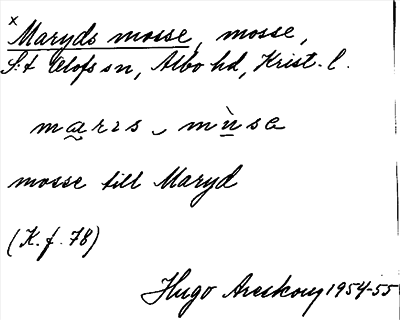 x
Maryds mosse, mosse,
S:t Olofs sn, Albo hd, Krist. l.
mosse till Maryd
(K. f. 78)
Hugo Areskoug 1954-55